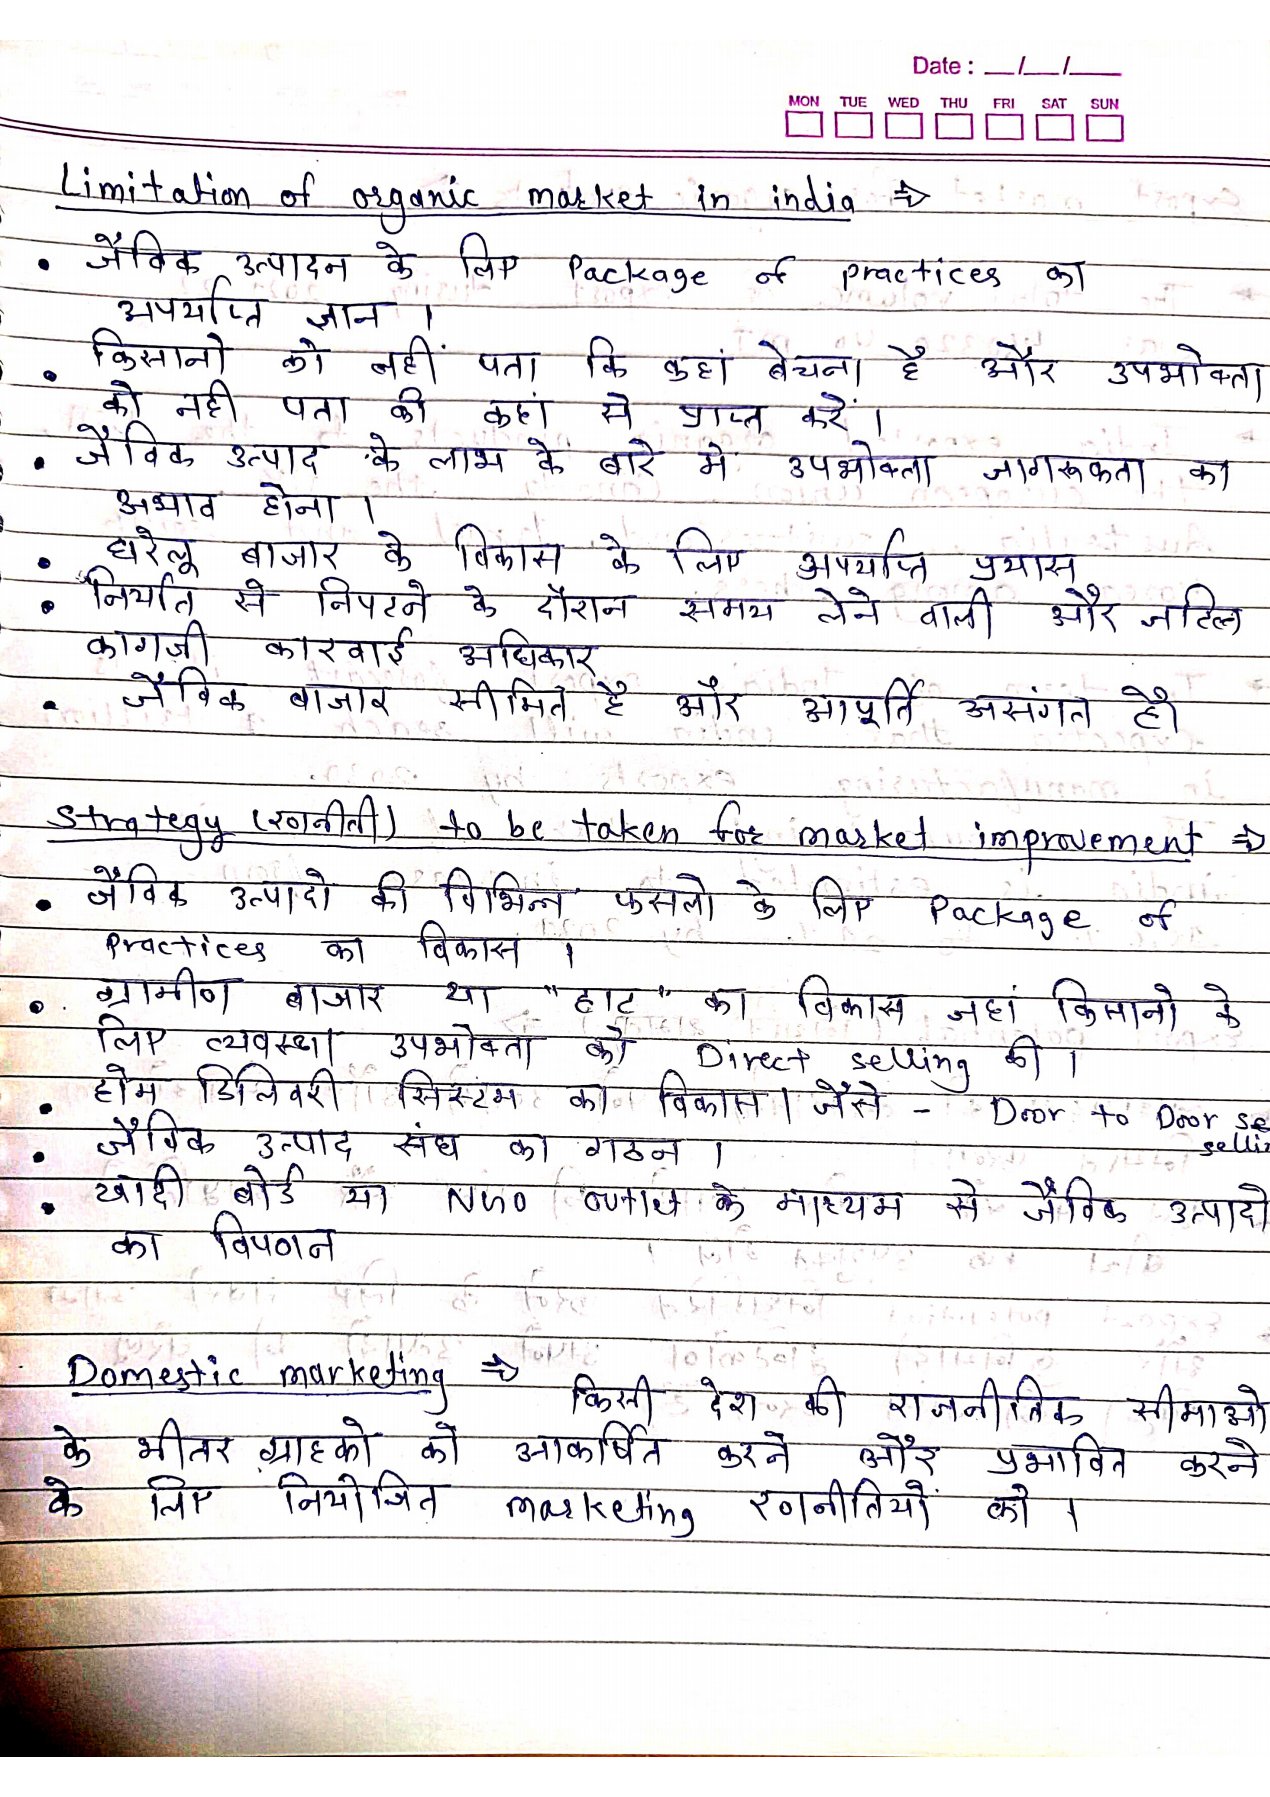 Date : __/__/____
MON TUE WED THU FRI SAT SUN
Limitation of organic market in india ⇒
• जैविक उत्पादन के लिए Package of practices का
अपर्याप्त ज्ञान ।
• किसानो को नहीं पता कि कहां बेचना है और उपभोक्ता
को नही पता की कहां से प्राप्त करें ।
• जैविक उत्पाद के लाभ के बारे मे उपभोक्ता जागरूकता का
अभाव होना ।
• घरेलू बाजार के विकास के लिए अपर्याप्त प्रयास
• निर्यात से निपटने के दौरान समय लेने वाली और जटिल
कागजी कारवाई अधिकार
• जैविक बाजार सीमित है और आपूर्ति असंगत है।
Strategy (रणनीती) to be taken for market improvement ⇒
• जैविक उत्पादो की विभिन्न फसलो के लिए Package of
Practices का विकास ।
• ग्रामीण बाजार या "हाट" का विकास जहां किसानो के
लिए व्यवस्था उपभोक्ता को Direct selling की ।
• होम डिलिवरी सिस्टम का विकास । जैसे - Door to Door se
selli
• जैविक उत्पाद संघ का गठन ।
• खादी बोर्ड या के माध्यम से जैविक उत्पादो
का विपणन
Domestic marketing ⇒ किसी देश की राजनीतिक सीमाओ
के भीतर ग्राहको को आकर्षित करने और प्रभावित करने
के लिए नियोजित marketing रणनीतियों को ।